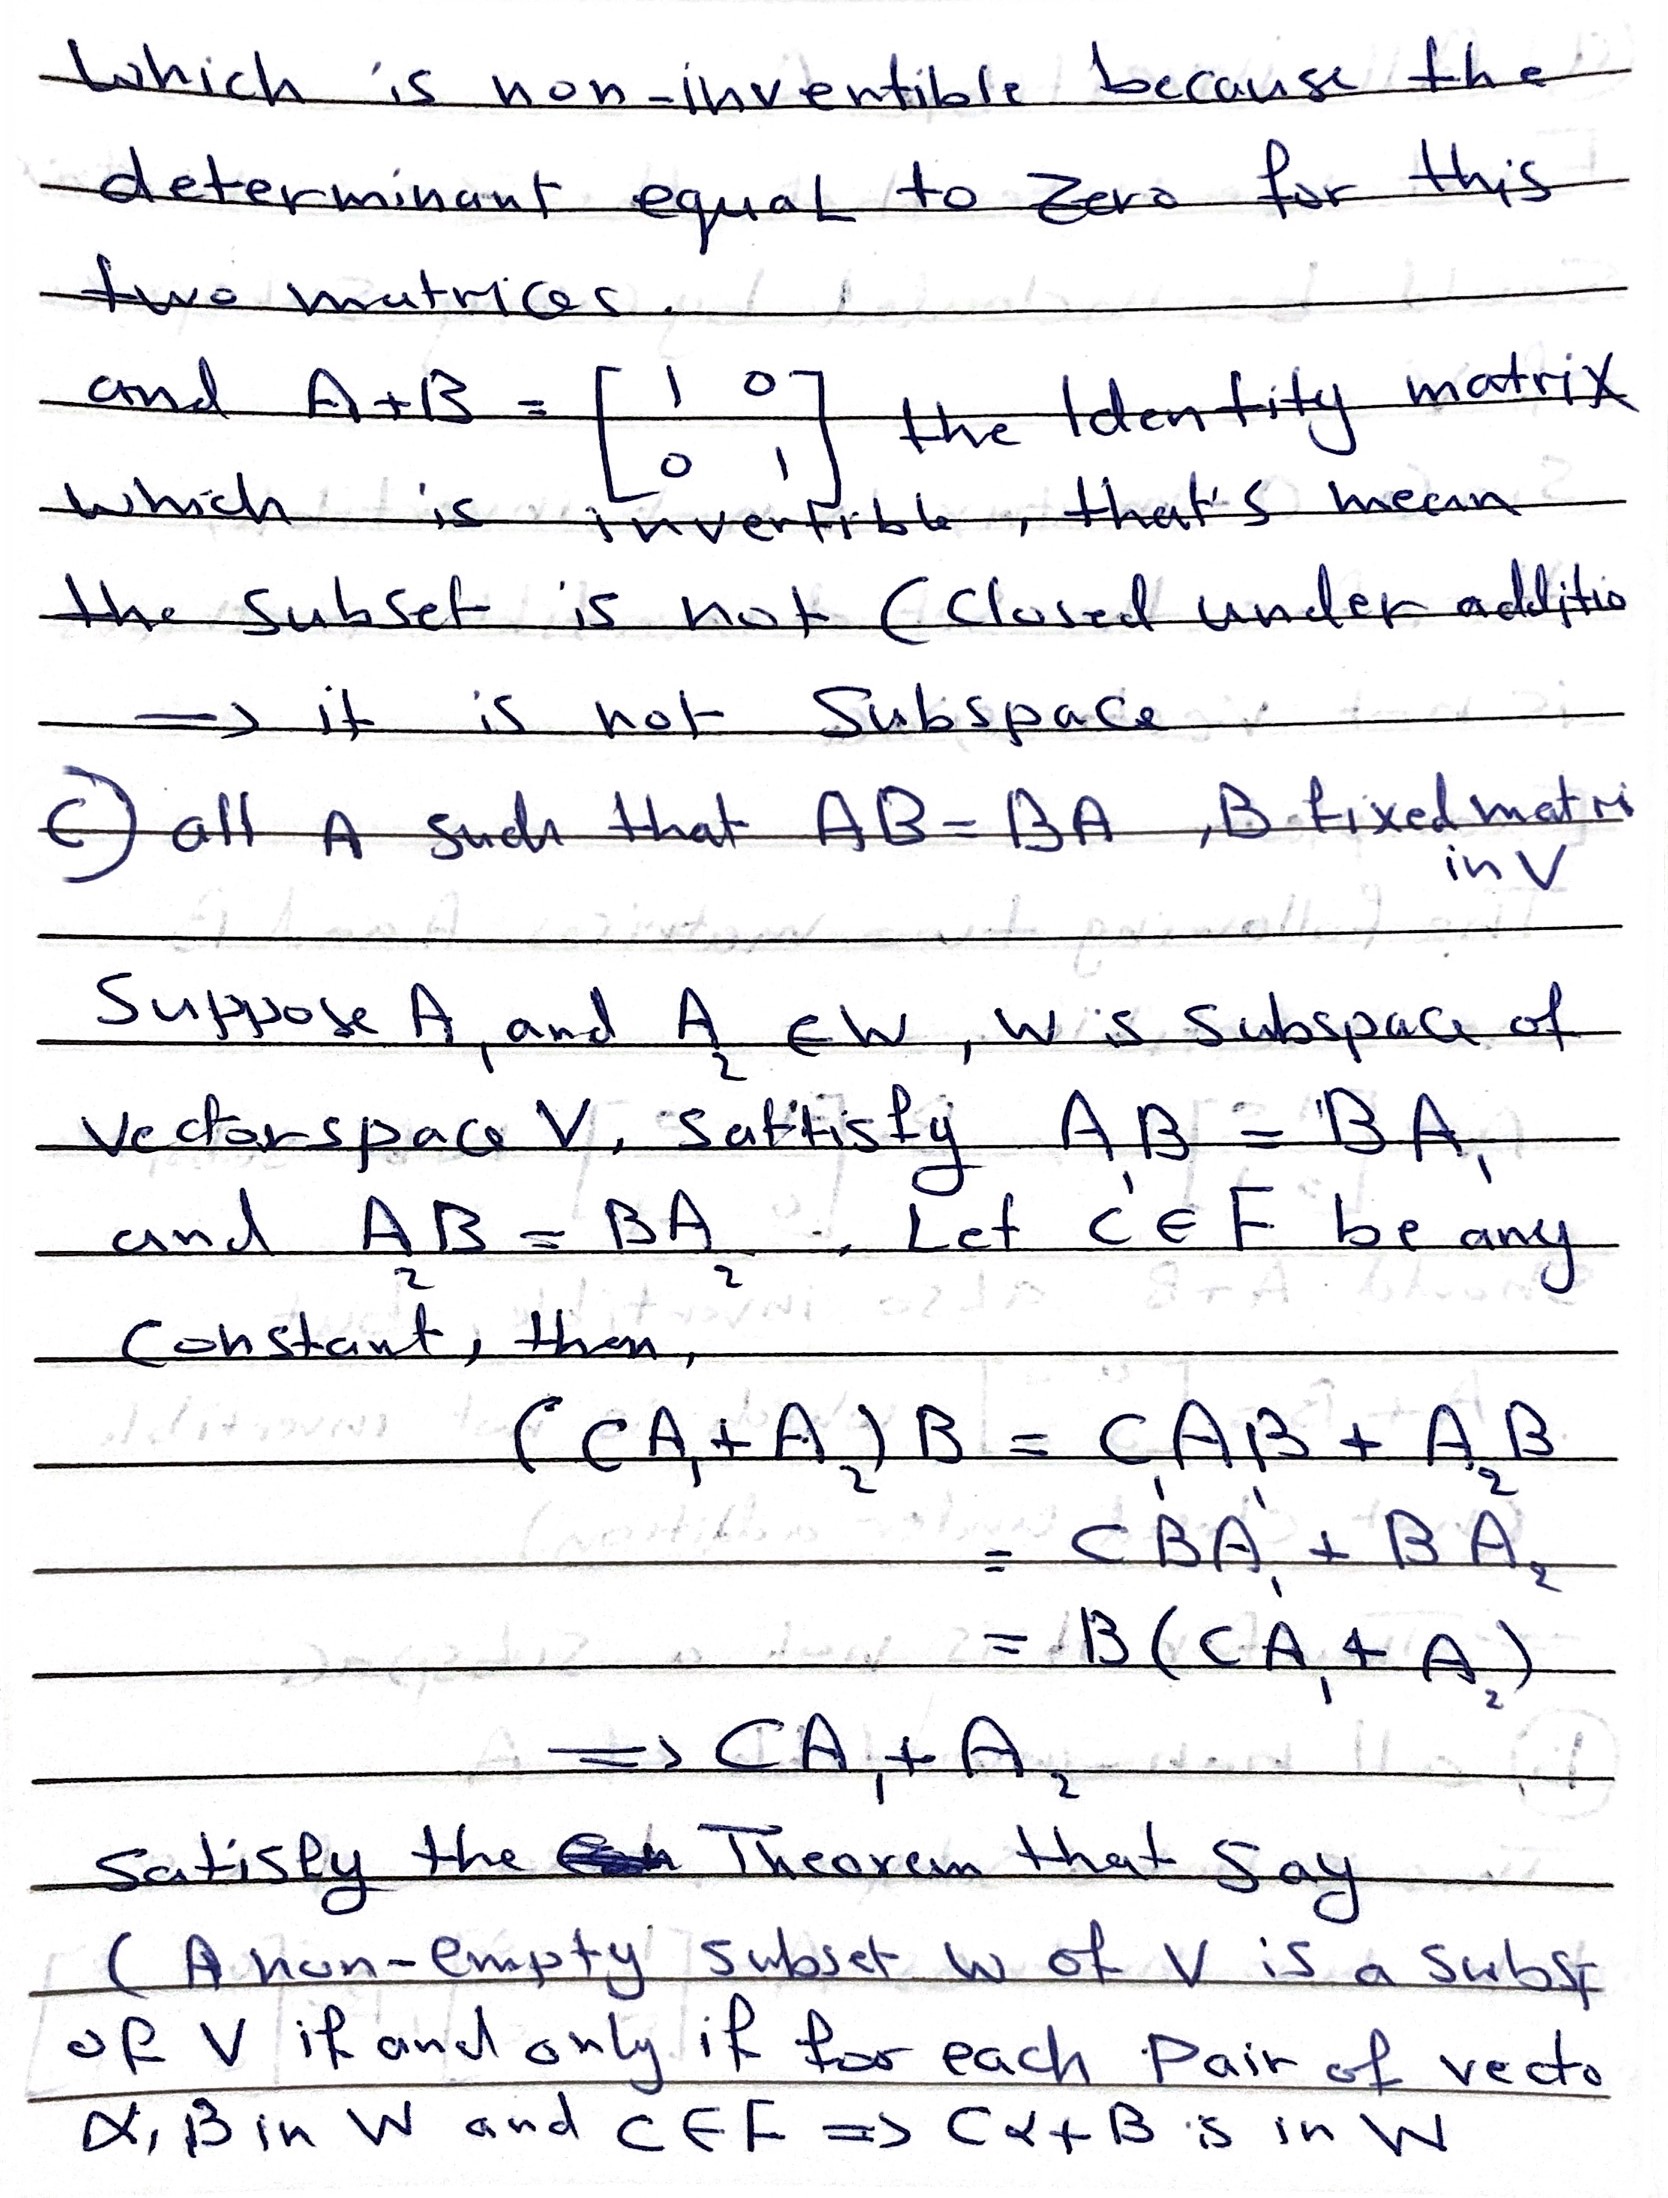 Which is non-invertible because the
determinant equal to Zero for this
two matrices.
and A+B = [1 0
0 1] the Identity matrix
which is invertible, that's mean
the subset is not (Closed under additio
⟹ it is not Subspace
C) all A such that AB=BA, B fixed matri
in V
Suppose A₁ and A₂ ∈ W, W is Subspace of
Vectorspace V, Sattisfy A₁B = BA₁
and A₂B = BA₂. Let C ∈ F be any
Constant, then,
(CA₁+A₂)B = C₁A₁B + A₂B
= CBA₁ + BA₂
= B(CA₁ + A₂)
⟹ CA₁ + A₂
Satisfy the Theorem that Say
(A non-empty subset W of V is a subs
of V if and only if for each Pair of vecto
α, B in W and C ∈ F ⟹ Cα+B is in W